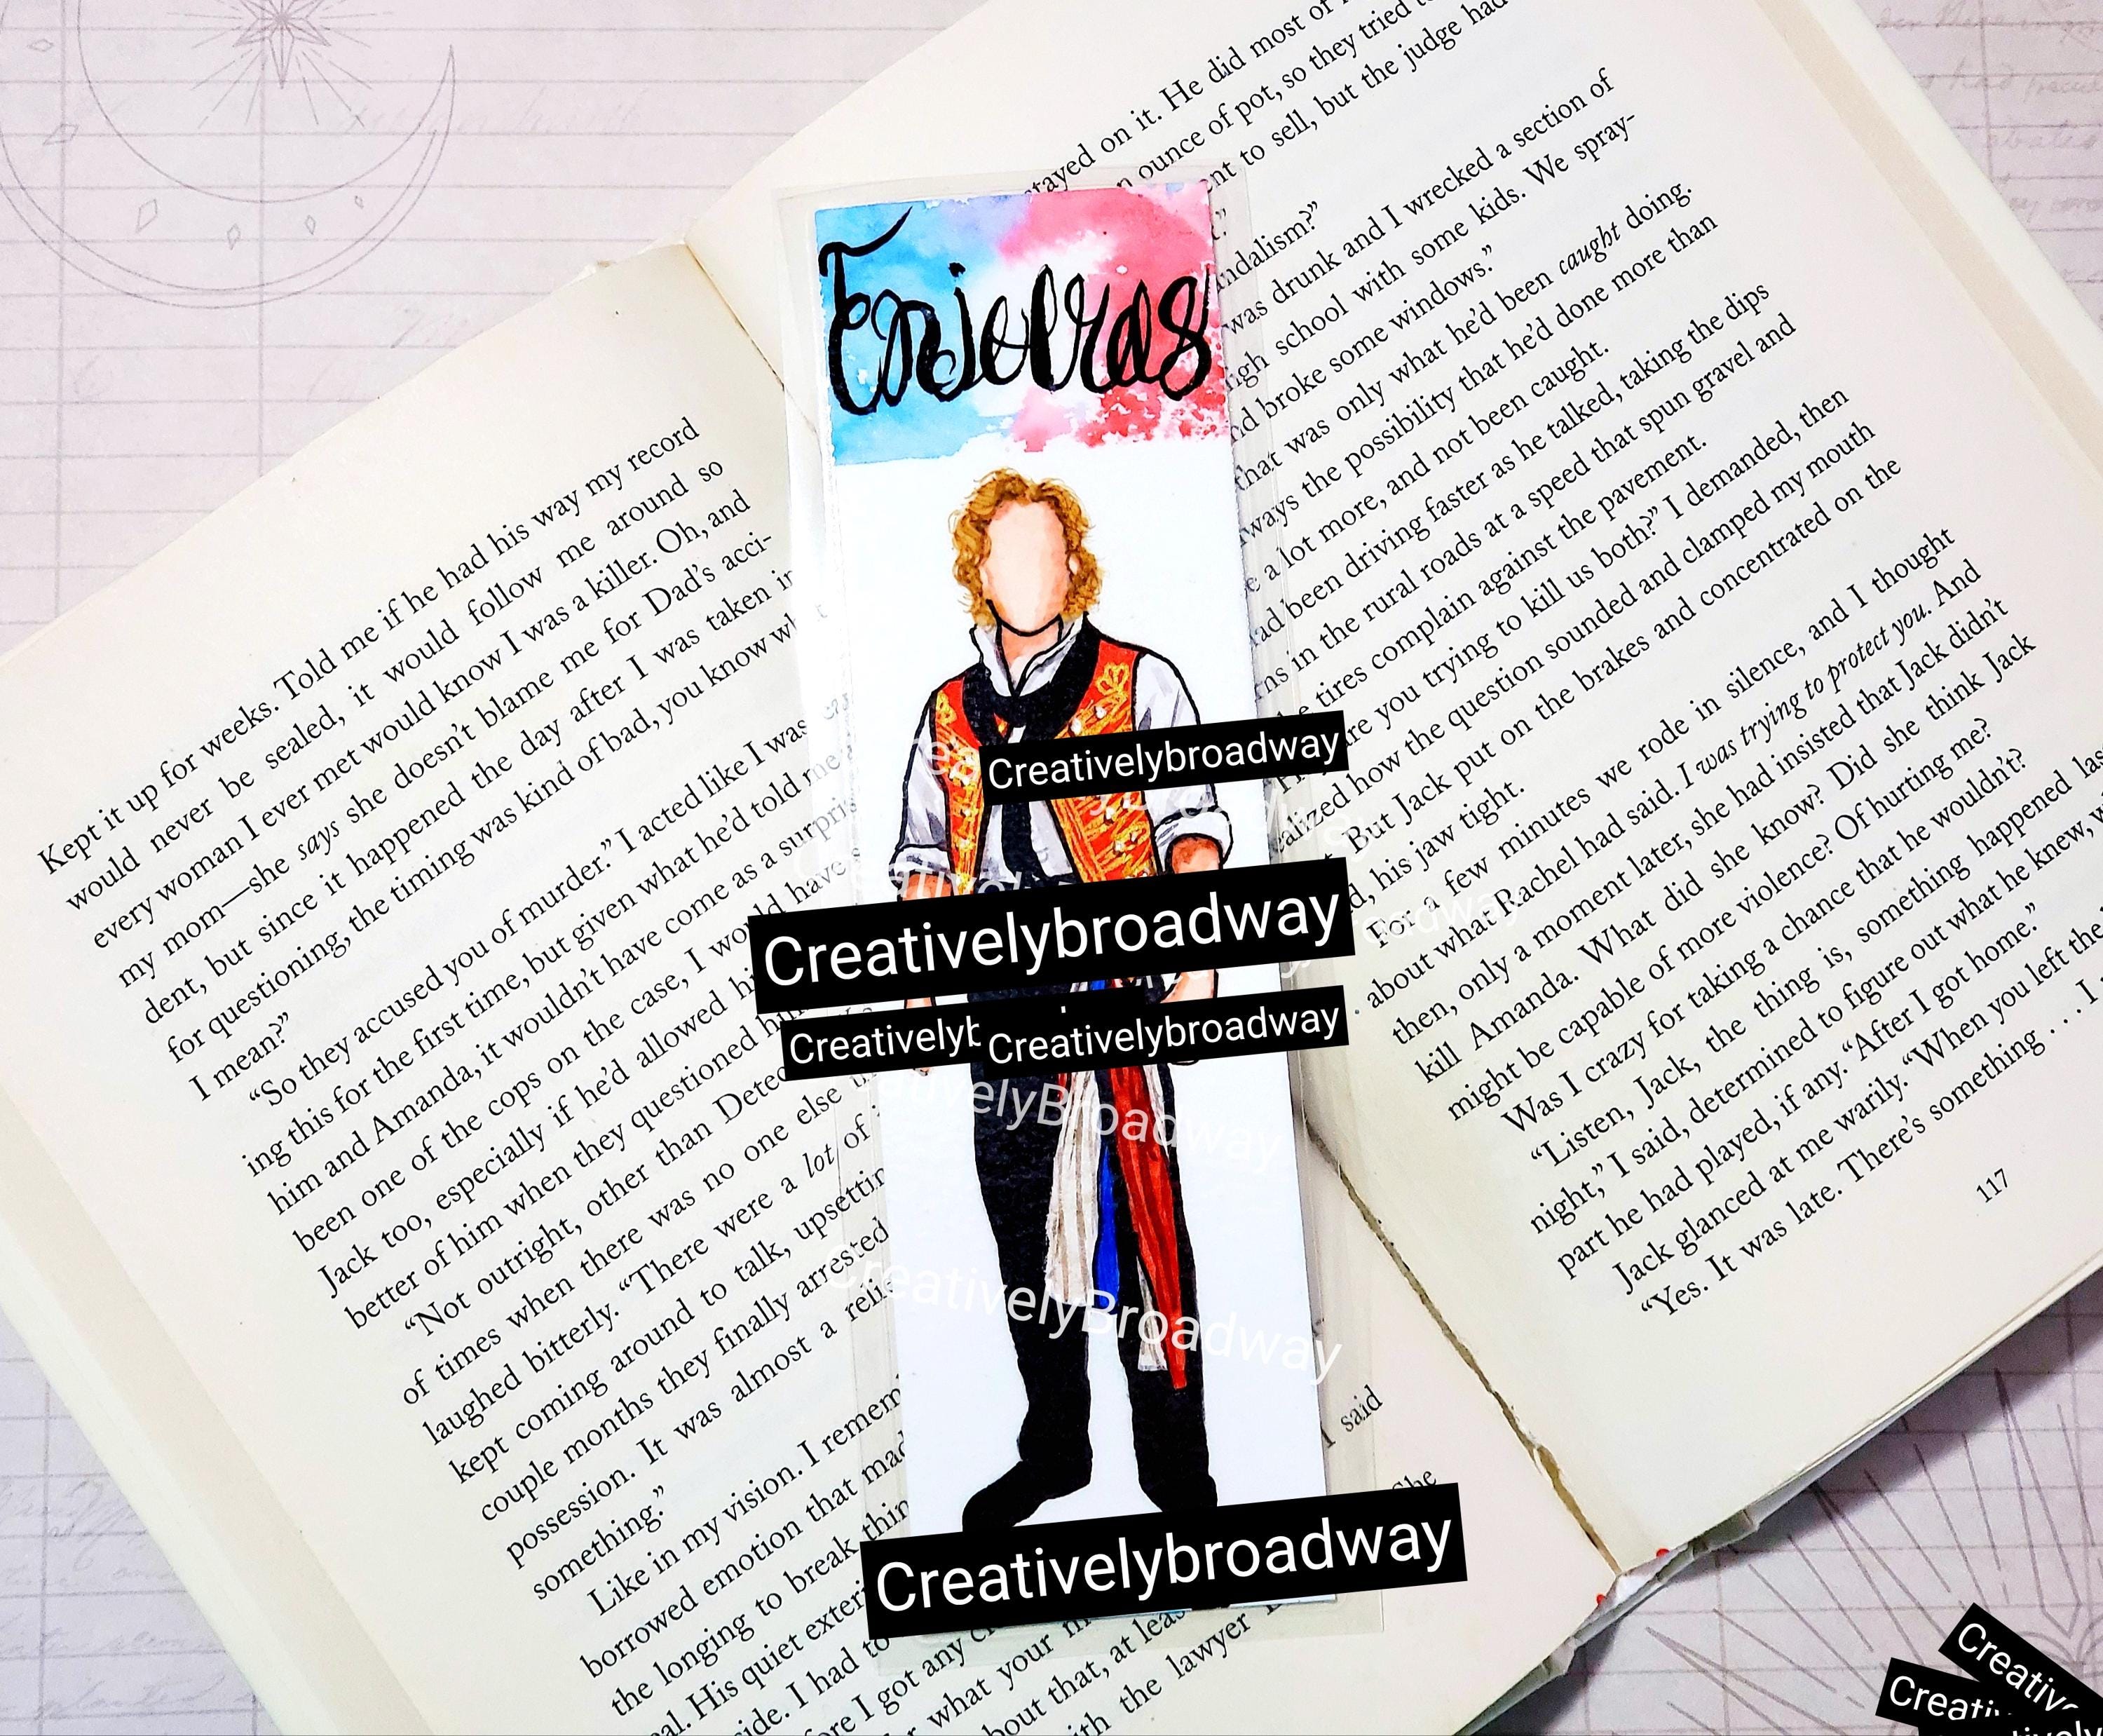 Kept it up for weeks. Told me if he had his way my record
would never be sealed, it would follow me around so
every woman I ever met would know I was a killer. Oh, and
my mom—she says she doesn't blame me for Dad's acci-
dent, but since it happened the day after I was taken in
for questioning, the timing was kind of bad, you know
I mean?"
"So they accused you of murder." I acted like I was
ing this for the first time, but given what he'd told me
him and Amanda, it wouldn't have come as a surpris
been one of the cops on the case, I would have s
Jack too, especially if he'd allowed hi
better of him when they questioned him
"Not outright, other than Detec
of times when there was no one else
laughed bitterly. "There were a lot of
kept coming around to talk, upsettin
couple months they finally arrested
possession. It was almost a relie
something."
Like in my vision. I remem
borrowed emotion that mad
the longing to break thin
al. His quiet exteri
side. I had to
ore I got any
what your
bout that, at leas
ith the lawyer
Enjolras
Creativelybroadway
Creativelybroadway
Creativelyb
Creativelybroadway
CreativelyBroadway
Creativelybroadway
stayed on it. He did most of
n ounce of pot, so they tried
ent to sell, but the judge had
t."
ndalism?"
was drunk and I wrecked a section of
igh school with some kids. We spray-
nd broke some windows."
that was only what he'd been caught doing.
ways the possibility that he'd done more than
e a lot more, and not been caught.
ad been driving faster as he talked, taking the dips
rns in the rural roads at a speed that spun gravel and
e tires complain against the pavement.
are you trying to kill us both?" I demanded, then
ealized how the question sounded and clamped my mouth
But Jack put on the brakes and concentrated on the
d, his jaw tight.
For a few minutes we rode in silence, and I thought
about what Rachel had said. I was trying to protect you. And
then, only a moment later, she had insisted that Jack didn't
kill Amanda. What did she know? Did she think Jack
might be capable of more violence? Of hurting me?
Was I crazy for taking a chance that he wouldn't?
"Listen, Jack, the thing is, something happened las
night," I said, determined to figure out what he knew, w
part he had played, if any. "After I got home."
Jack glanced at me warily. "When you left the
"Yes. It was late. There's something . . . I
117
I said
She
Creative
Creativ